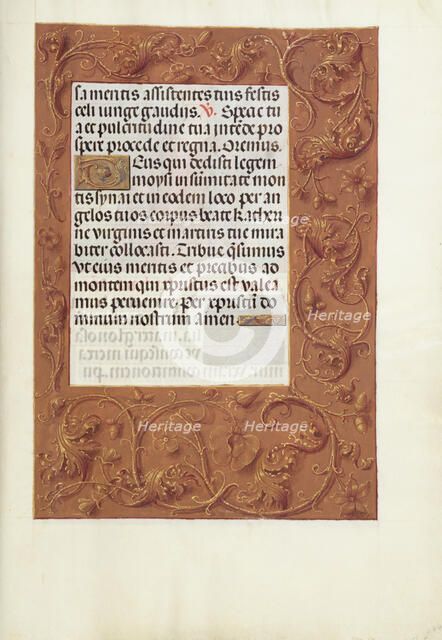 sa mentis assistentes tuis festis
celi iunge gaudiis. V. Specie tu
a et pulcritudine tua intēde pro
spere procede et regna. Oremus.
Deus qui dedisti legem
moysi in sūmitate mon
tis synai et in eodem loco per an
gelos tuos corpus beate Katheri
ne virginis et martiris tue mira
biliter collocasti. Tribue q̄sumus
ut eius meritis et precibus ad
montem qui xpristus est valea
mus peruenire. Per xpristū do
minum nostrum amen
Heritage
Heritage
Heritage
Heritage
Heritage